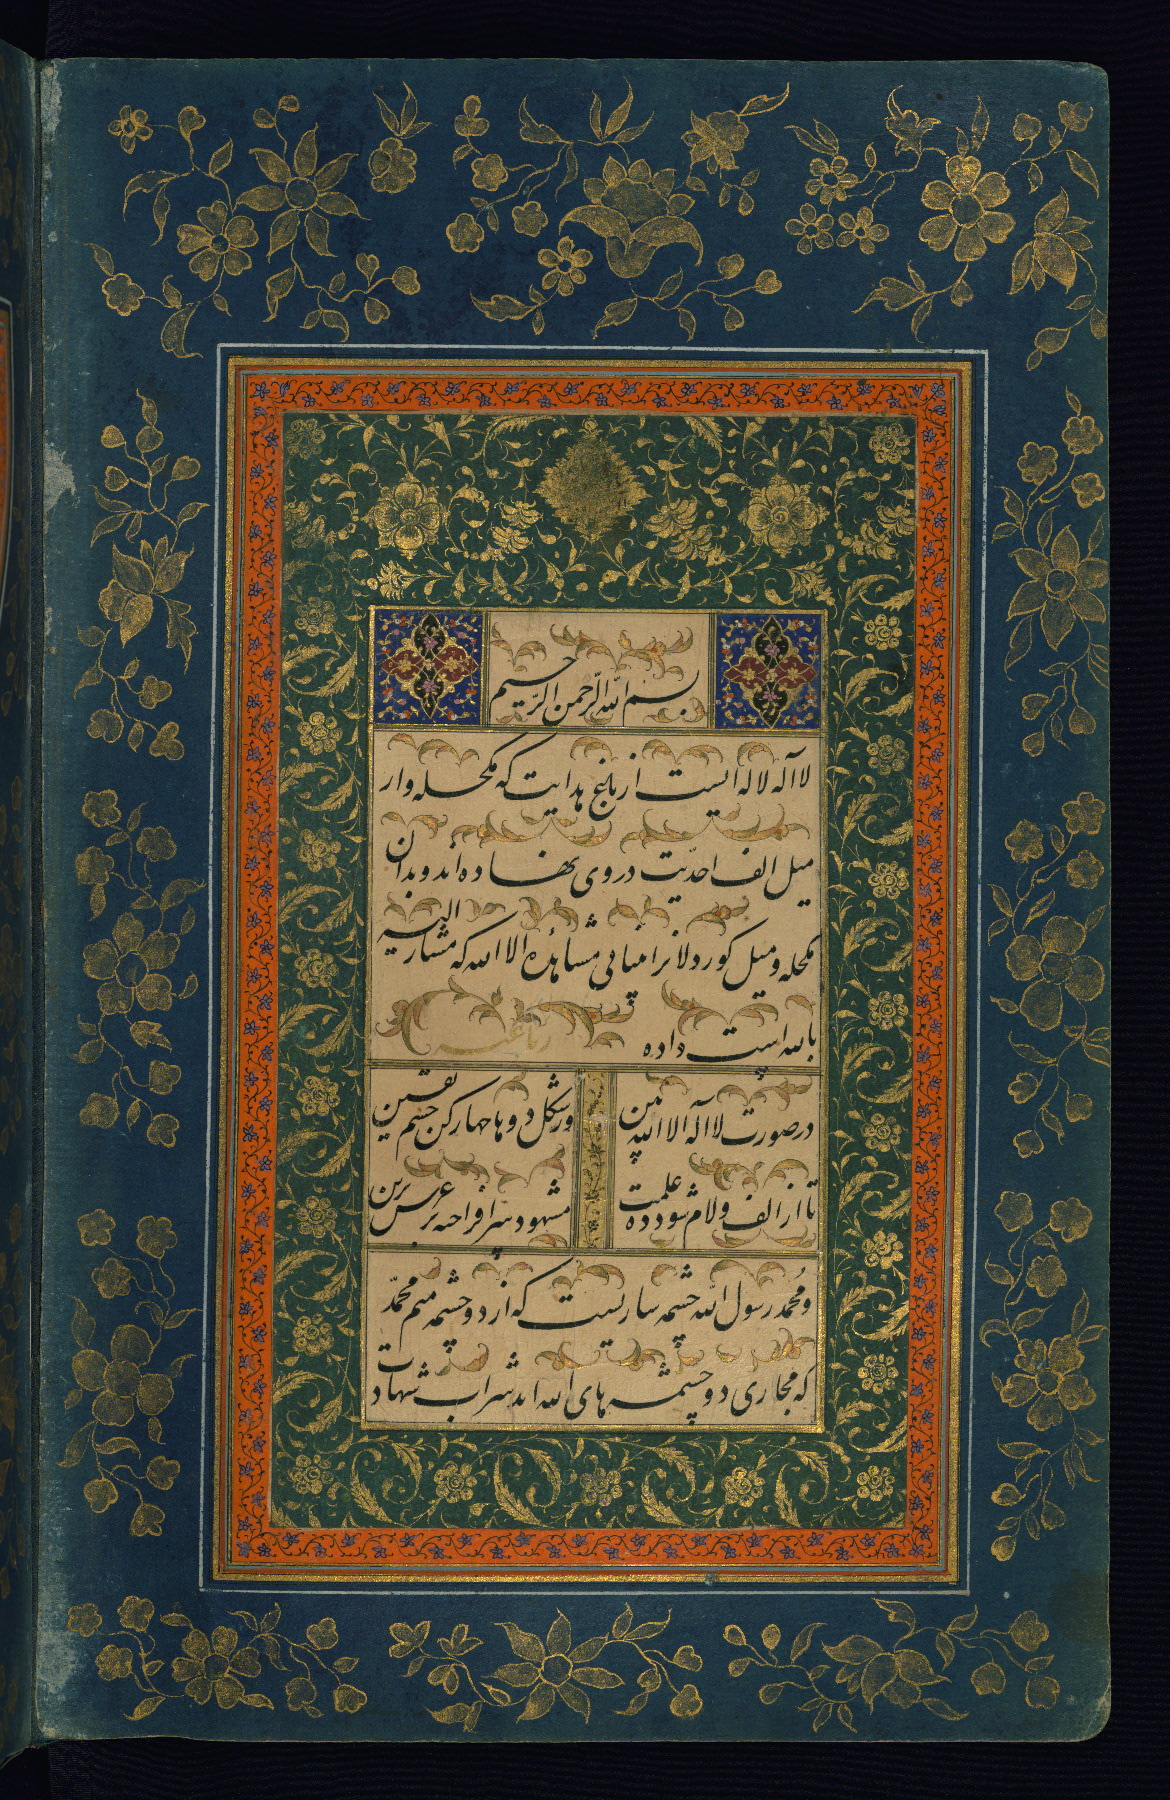 بسم الله الرحمن الرحیم
لا اله لاله ایست از باغ هدایت که مکحله وار
میل الف احدیت در وی نهاده اند و بدان
مکحله و میل کوردلانرا بینائی مشاهدهٔ الا الله که مشار الیه
بالله است داده
رباعیه
در صورت لا اله الا الله بین
ور شکل دو ها چهار کن چشم یقین
تا از الف و لام شود ده علمت
مشهود سرافراخته بر عرش برین
و محمد رسول الله چشمه ساریست که از دو چشمه میم محمد
که مجاری دو چشمه های الله اند شراب شهاد